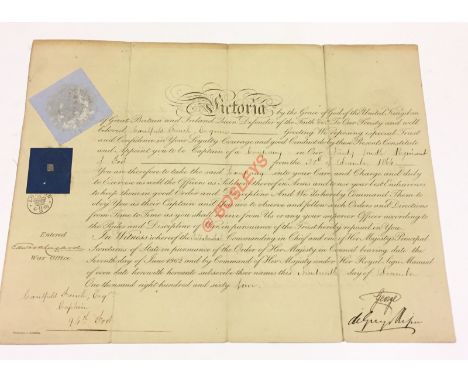 Victoria by the Grace of God of the United Kingdom
of Great Britain and Ireland Queen Defender of the Faith &c To Our Trusty and well
beloved, Greeting We reposing especial Trust
and Confidence in Your Loyalty Courage and good Conduct do by these Presents Constitute
and Appoint you to be Captain of a Company in Our Regiment
of Foot
You are therefore to take the said Company into your Care and Charge and duly
to Exercise as well the Officers as Soldiers thereof in Arms and to use your best Endeavours
to keep them in good Order and Discipline And We do hereby Command Them to
obey You as their Captain and You to observe and follow such Orders and Directions
from Time to Time as you shall receive from Us or any your superior Officer according to
the Rules and Discipline of War in pursuance of the Trust hereby reposed in You.
In Witness whereof Our Commanding in Chief and one of Her Majesty's Principal
Secretaries of State in pursuance of the Order of Her Majesty in Council bearing date the
Seventh day of June 1862 and by Command of Her Majesty under Her Royal Sign Manual
of even date herewith hereunto subscribe their names this day of
One thousand eight hundred and sixty four
@ BOSLEYS
Entered
War Office
Captain
94th Foot
George
de Grey & Ripon